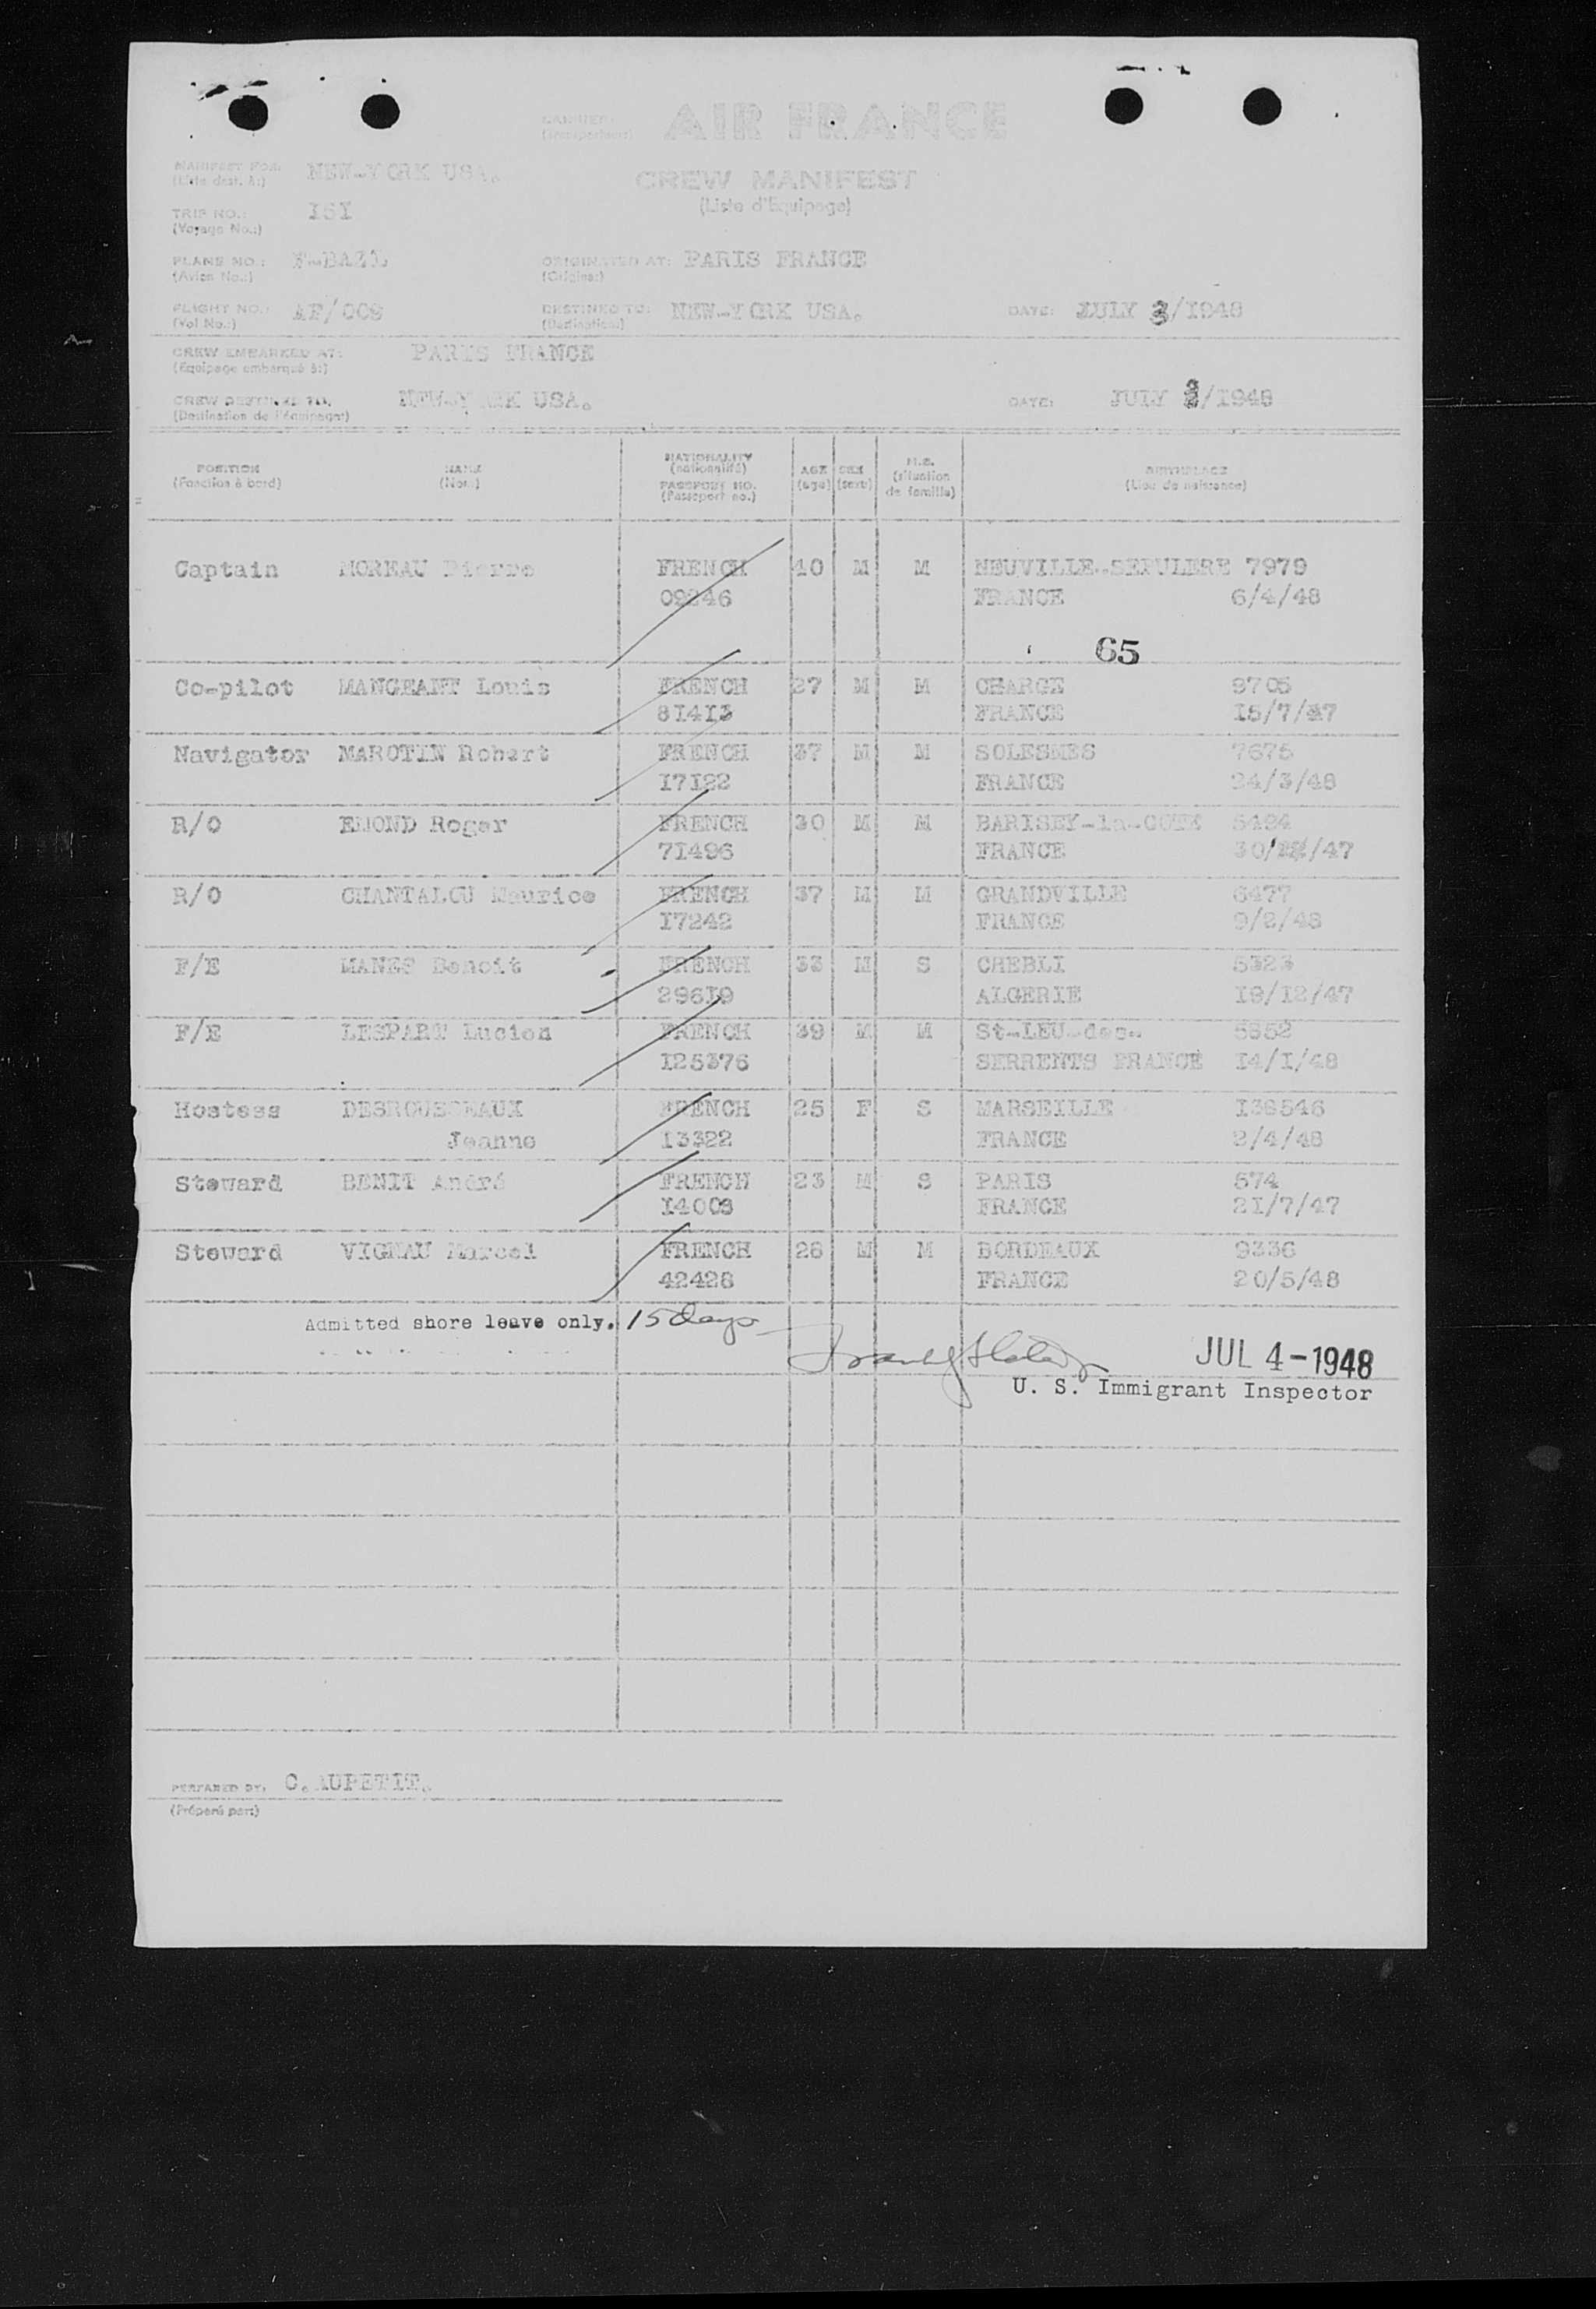 CARRIER: AIR FRANCE
(transporteur)
MANIFEST FOR: NEW-YORK USA.
(Liste dest. à:)
CREW MANIFEST
(Liste d'Equipage)
TRIP NO.: I5I
(Voyage No.:)
PLANE NO.: F-BAZL ORIGINATED AT: PARIS FRANCE
(Avion No.:) (Origine:)
FLIGHT NO.: AF/009 DESTINED TO: NEW-YORK USA. DATE: JULY 3/I948
(Vol No.:) (Destination:)
CREW EMBARKED AT: PARIS FRANCE
(Equipage embarqué à:)
CREW DESTINED TO: USA. DATE: JULY 3/I948
(Destination de l'équipage:)
POSITION NAME NATIONALITY AGE SEX M.S. BIRTHPLACE
(Fonction à bord) (Nom) (nationalité) (age) (sexe) (situation de famille) (Lieu de naissance)
PASSPORT NO.
(Passeport no.)
Captain MOREAU Pierre FRENCH 40 M M NEUVILLE-SEPULERE 7979
09246 FRANCE 6/4/48
65
Co-pilot MANGEANT Louis FRENCH 27 M M CHARGE 9705
8I4I3 FRANCE I5/7/47
Navigator MAROTIN Robert FRENCH 37 M M SOLESMES 7675
I7I22 FRANCE 24/3/48
R/O EMOND Roger FRENCH 30 M M BARISEY-la-COTE 5494
7I496 FRANCE 30/12/47
R/O CHANTALOU Maurice FRENCH 37 M M GRANDVILLE 6477
I7242 FRANCE 9/2/48
F/E MANES Benoit FRENCH 33 M S CHEBLI 5323
296I9 ALGERIE I9/I2/47
F/E LESPART Lucien FRENCH 39 M M St-LEU-des- 5852
I25376 SERRENTS FRANCE I4/I/48
Hostess DESROUSSEAUX FRENCH 25 F S MARSEILLE I38546
Jeanne I3322 FRANCE 2/4/48
Steward BENIT André FRENCH 23 M S PARIS 574
I4008 FRANCE 2I/7/47
Steward VIGNAU Marcel FRENCH 28 M M BORDEAUX 9336
42428 FRANCE 20/5/48
Admitted shore leave only. 15 days
JUL 4-1948
U. S. Immigrant Inspector
PERPARED BY: C. AUPETIT.
(Préparé par:)